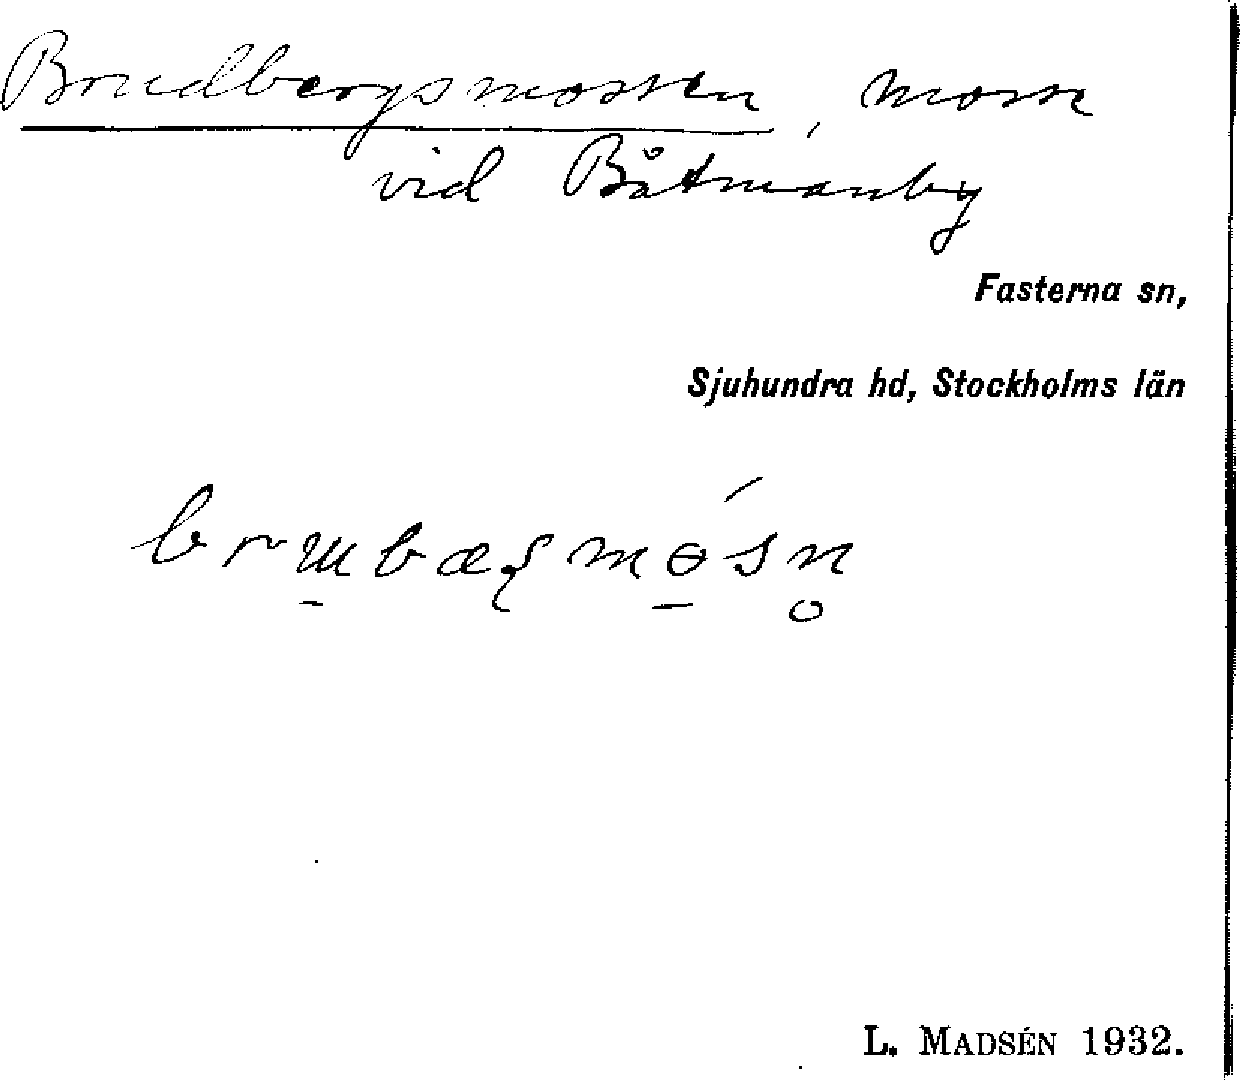 Brudbergsmossen, mosse
vid Båtmanby
Fasterna sn,
Sjuhundra hd, Stockholms län
L. MADSÉN 1932.